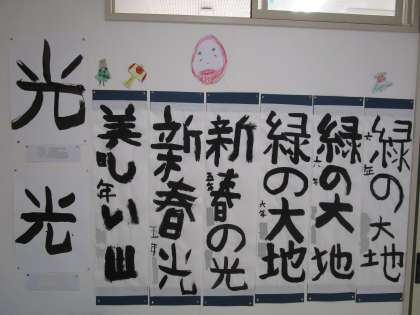 緑の大地
六年
緑の大地
六年
緑の大地
六年
新春の光
新春光
五年
美しい山
年
光
光